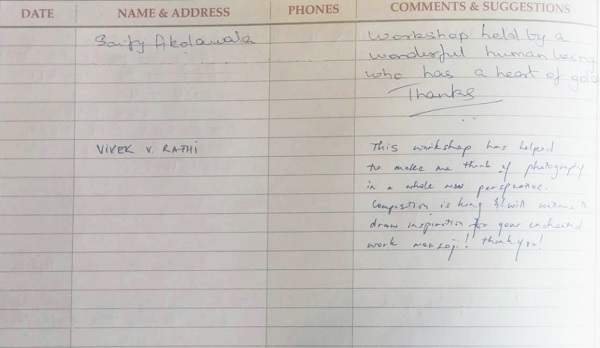 DATE NAME & ADDRESS PHONES COMMENTS & SUGGESTIONS
Saify Akolawala
Workshop held by a
wonderful human being
who has a heart of gold
Thanks
VIVEK V. RATHI
This workshop has helped
to make me think of photography
in a whole new perspective.
Composition is king & will continue to
draw inspiration for your enchanted
work mansoji! Thank you!